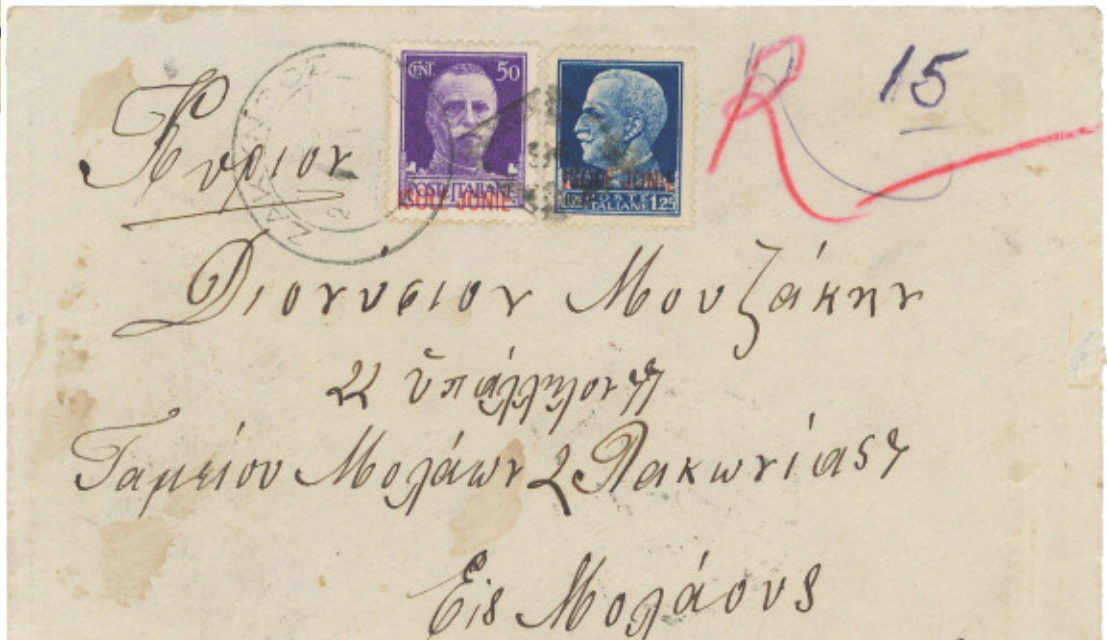 R 15
CENT. 50
POSTE ITALIANE
ISOLE JONIE
ISOLE JONIE
POSTE
ITALIANE 1.25
Κυριον
Διονυσιον Μουζάκην
ὑπάλληλον
Ταμείου Μολάων Λακωνίας
Εις Μολάους